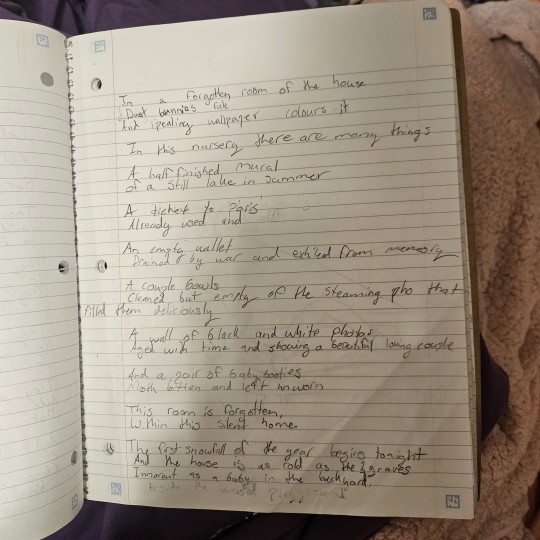 In a forgotten room of the house
Dust bunnies rule
And peeling wallpaper colours it
In this nursery there are many things
A half finished mural
of a still lake in Summer
A ticket to Paris
Already used and
An empty wallet
by war and exiled from memory
A couple bowls
Cleaned but empty of the steaming pho that
filled them deliciously
A wall of black and white photos
Aged with time and showing a beautiful loving couple
And a pair of baby booties
Moth bitten and left unworn
This room is forgotten,
Within this silent home.
The first snowfall of the year begins tonight
And the house is as cold as the 2 graves
Innocent as a baby in the backyard.
the unused